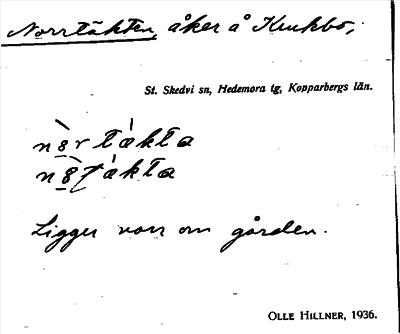 Norrtäkten, åker å Krukbo,
St. Skedvi sn, Hedemora tg, Kopparbergs län.
Ligger norr om gården.
OLLE HILLNER, 1936.